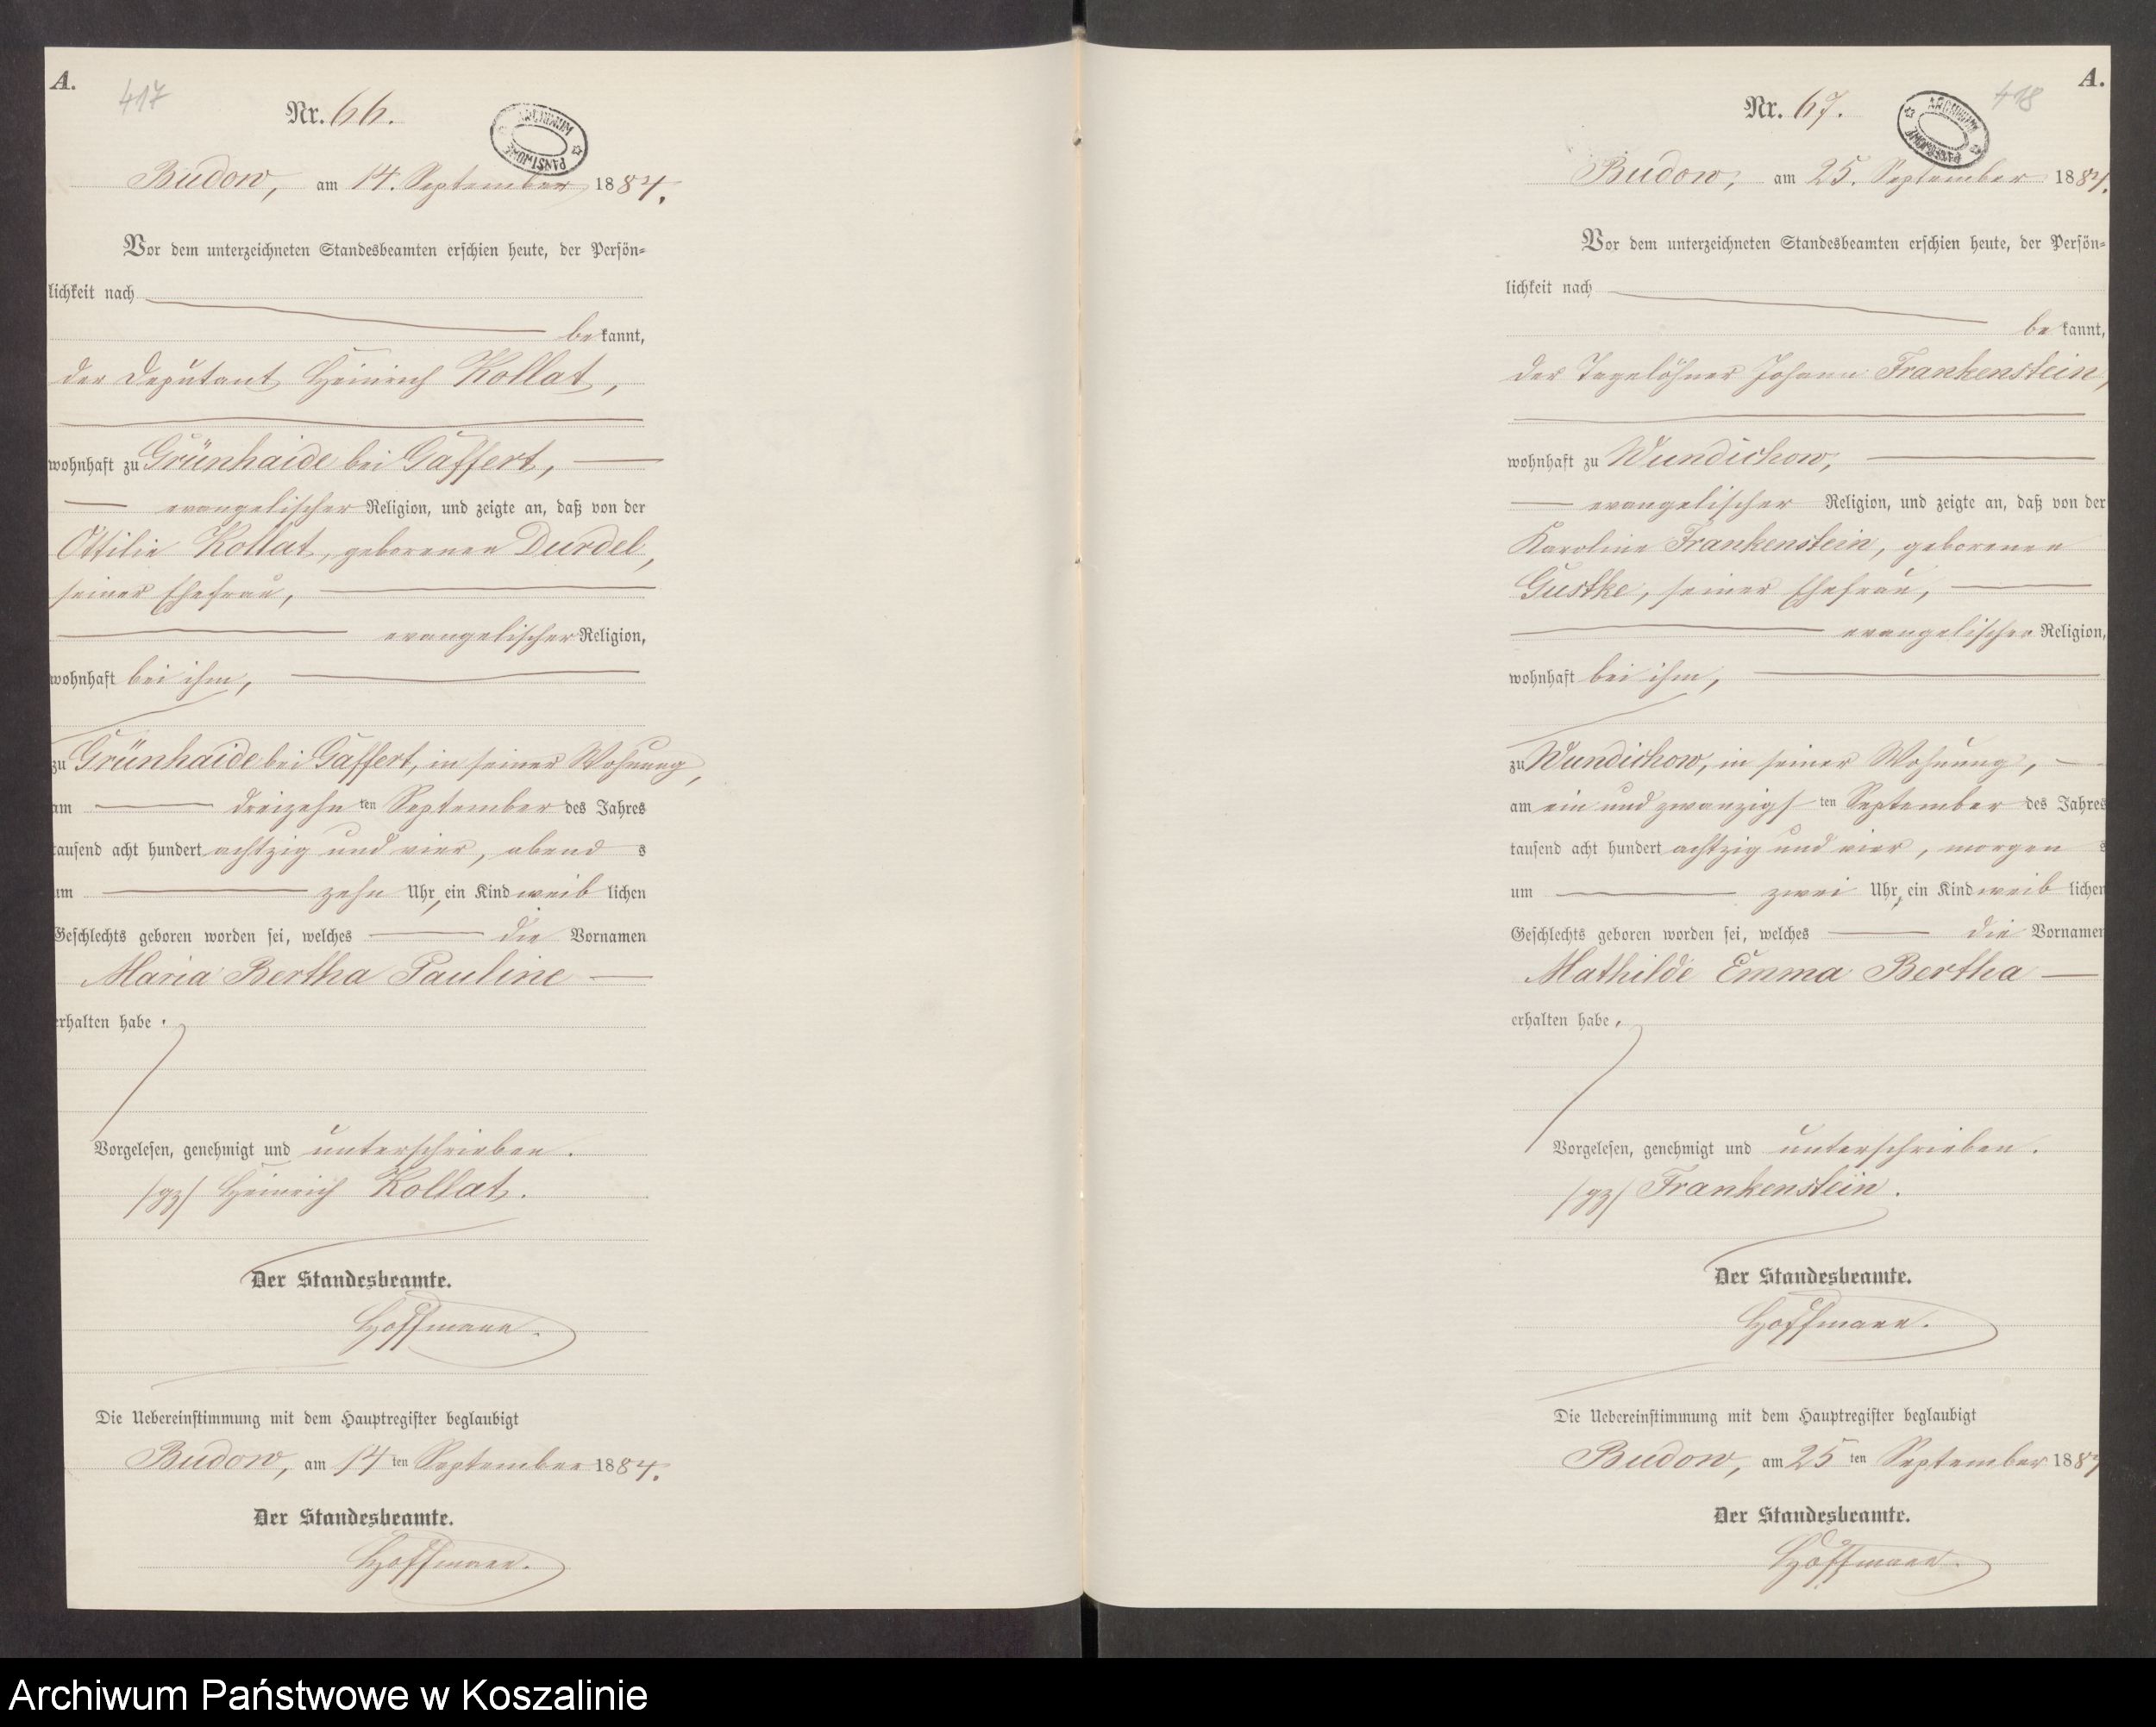 A.
417
Nr. 66.
ARCHIWUM PAŃSTWOWE
Budow, am 14. September 1884.
Vor dem unterzeichneten Standesbeamten erschien heute, der Persön=
lichkeit nach
bekannt,
der Deputant Heinrich Kollat,
wohnhaft zu Grünhaide bei Gaffert,
evangelischer Religion, und zeigte an, daß von der
Ottilie Kollat, geborenen Durdel,
seiner Ehefrau,
evangelischer Religion,
wohnhaft bei ihm,
zu Grünhaide bei Gaffert, in seiner Wohnung,
am dreizehn ten September des Jahres
tausend acht hundert achtzig und vier, abend s
um zehn Uhr, ein Kind weib lichen
Geschlechts geboren worden sei, welches die Vornamen
Maria Bertha Pauline
erhalten habe.
Vorgelesen, genehmigt und unterschrieben.
/gz/ Heinrich Kollat.
Der Standesbeamte.
Hoffmann.
Die Uebereinstimmung mit dem Hauptregister beglaubigt
Budow, am 14 ten September 1884.
Der Standesbeamte.
Hoffmann.
A.
418
Nr. 67.
ARCHIWUM PAŃSTWOWE
Budow, am 25. September 1884.
Vor dem unterzeichneten Standesbeamten erschien heute, der Persön=
lichkeit nach
be kannt,
der Tagelöhner Johann Frankenstein,
wohnhaft zu Wundichow,
evangelischer Religion, und zeigte an, daß von der
Karoline Frankenstein, geborenen
Gustke, seiner Ehefrau,
evangelischer Religion,
wohnhaft bei ihm,
zu Wundichow, in seiner Wohnung,
am ein und zwanzigs ten September des Jahres
tausend acht hundert achtzig und vier, morgen s
um zwei Uhr, ein Kind weib lichen
Geschlechts geboren worden sei, welches die Vornamen
Mathilde Emma Bertha
erhalten habe.
Vorgelesen, genehmigt und unterschrieben.
/gz/ Frankenstein.
Der Standesbeamte.
Hoffmann.
Die Uebereinstimmung mit dem Hauptregister beglaubigt
Budow, am 25 ten September 1884
Der Standesbeamte.
Hoffmann.
Archiwum Państwowe w Koszalinie